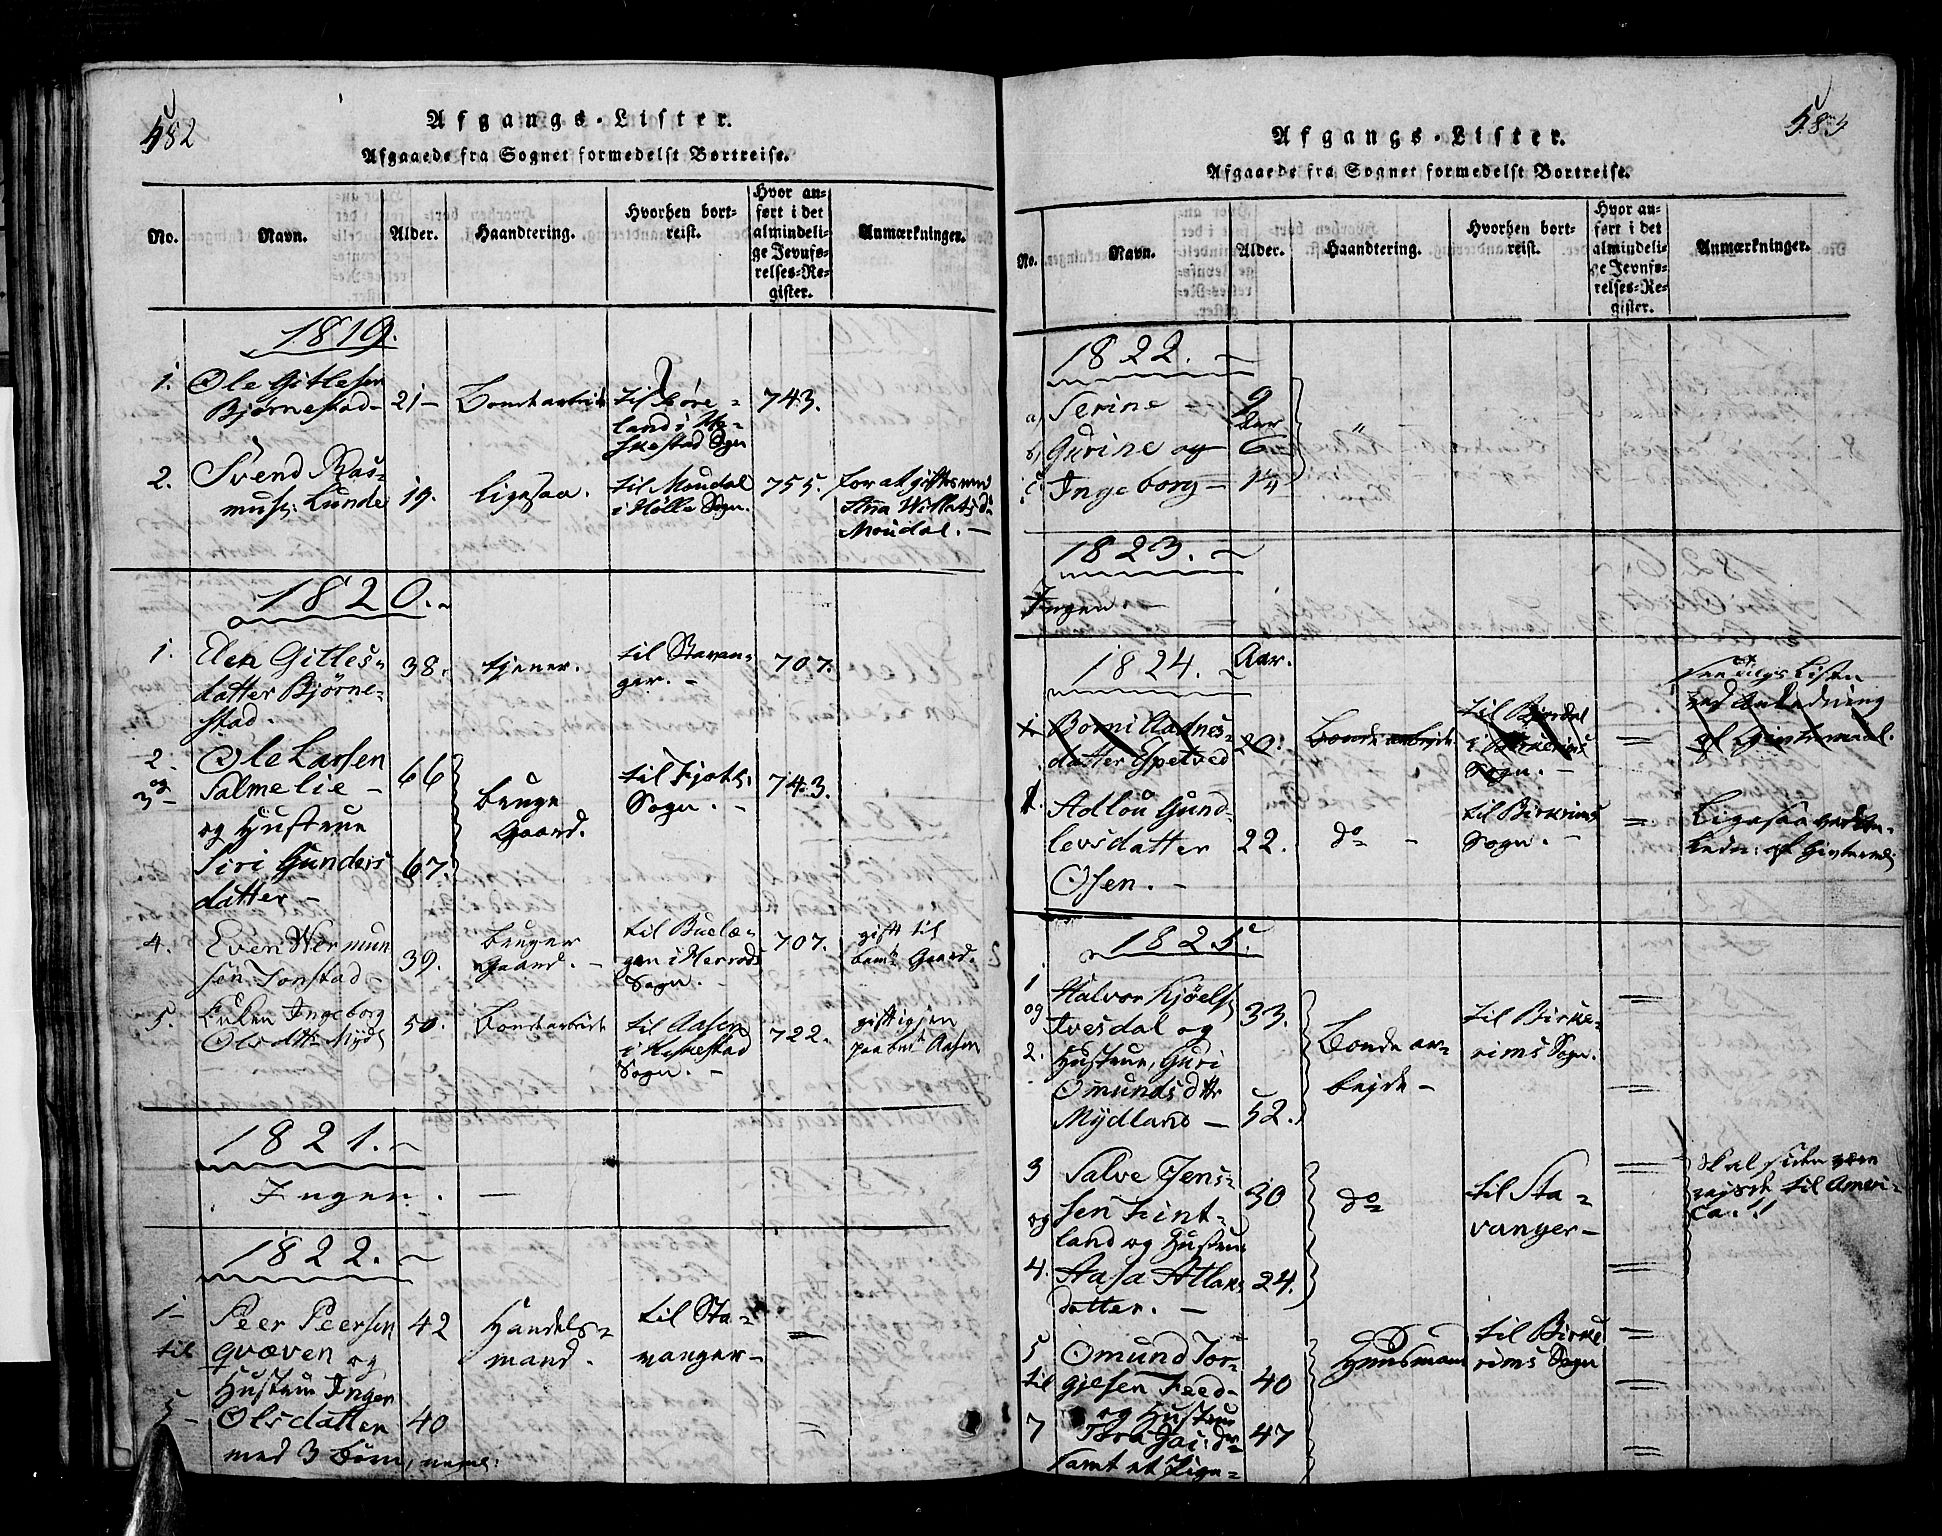 582
Afgangs-Lister.
Afgaaede fra Sognet formedelst Bortreise.
No. Navn. Alder. Haandtering. Hvorhen bort-
reist. Hvor an-
ført i det
almindeli-
ge Jevnfø-
relses-Re-
gister. Anmærkninger.
1819.
1. Ole Gitlesen
Bjørnestad 21 Bondearbeide til
land i
Sogn 743.
2. Svend Ras-
mus: Lunde 19. ligesaa. til Moudal
i Sogn. 755. for at giftes med
Moudal.
1820.
1. Elen Gitles-
datter Bjørne-
stad. 38. tjener. til Stavan-
ger. 707.
2. Ole Larsen
og
3 Salmelie
og Hustrue
Siri Gunders
datter 66
67. bruge
Gaard. til
Sogn. 743.
4. Even Wermun
sen Tonstad 39. bruger
Gaard. til
gen i
Sogn. 707. gift til
Gaard.
5. Enken Ingeborg
Olsdtr 50. Bondearbeide til Aasen
i
Sogn. 722. gift igjen
paa Aasen
1821.
Ingen.
1822.
1
til
5 Peer Peersen
qvæven og
Hustrue Inger
Olsdatter
med 3 børn, neml: 42
40 Handels-
mand. til Sta-
vanger
583
Afgangs-Lister.
Afgaaede fra Sognet formedelst Bortreise.
No. Navn. Alder. Haandtering. Hvorhen bort-
reist. Hvor an-
ført i det
almindeli-
ge Jevnfø-
relses-Re-
gister. Anmærkninger.
1822.
a) Serine 9
Aar
b) Gurine og 6
c) Ingeborg 1/4 "
1823.
Ingen.
1824. Aar.
1 Borni Aadnes-
datter Espetved 20. Bonde arbeide til
i Birkrims
Sogn. =
Listen
ved Anledning
af Givtermaal.
1. Adlou Gund-
levsdatter
Osen. 22. do til Birkrims
Sogn. = Ligesaa
1825.
1
og
2. Halvor Kjøels
Ivesdal og
Hustrue, Guri
Omunds dtr
Mydland 33.
52. Bonde ar-
beide til Birke-
rims Sogn. =
3
og
4. Salve Jens-
sen Fint-
land og Hustrue
Aasa Atlan
datter. 30
24. do til Sta-
vanger = Skal siden være
reiste til Ameri-
ca.
5
til
7 Omund Tor-
gjesen Feed
og Hustrue
Tora
samt et Pige- 40
47 Huusmand til Birke
rims Sogn =